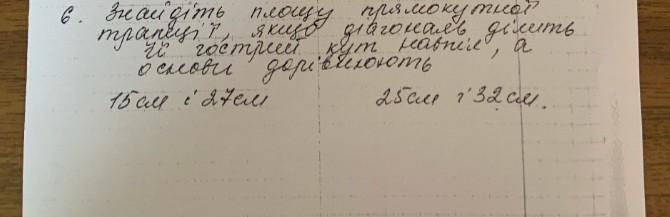 6. Знайдіть площу прямокутної
трапеції, якщо діагональ ділить
її гострий кут навпіл, а
основи дорівнюють
15см і 27см 25см і 32см.